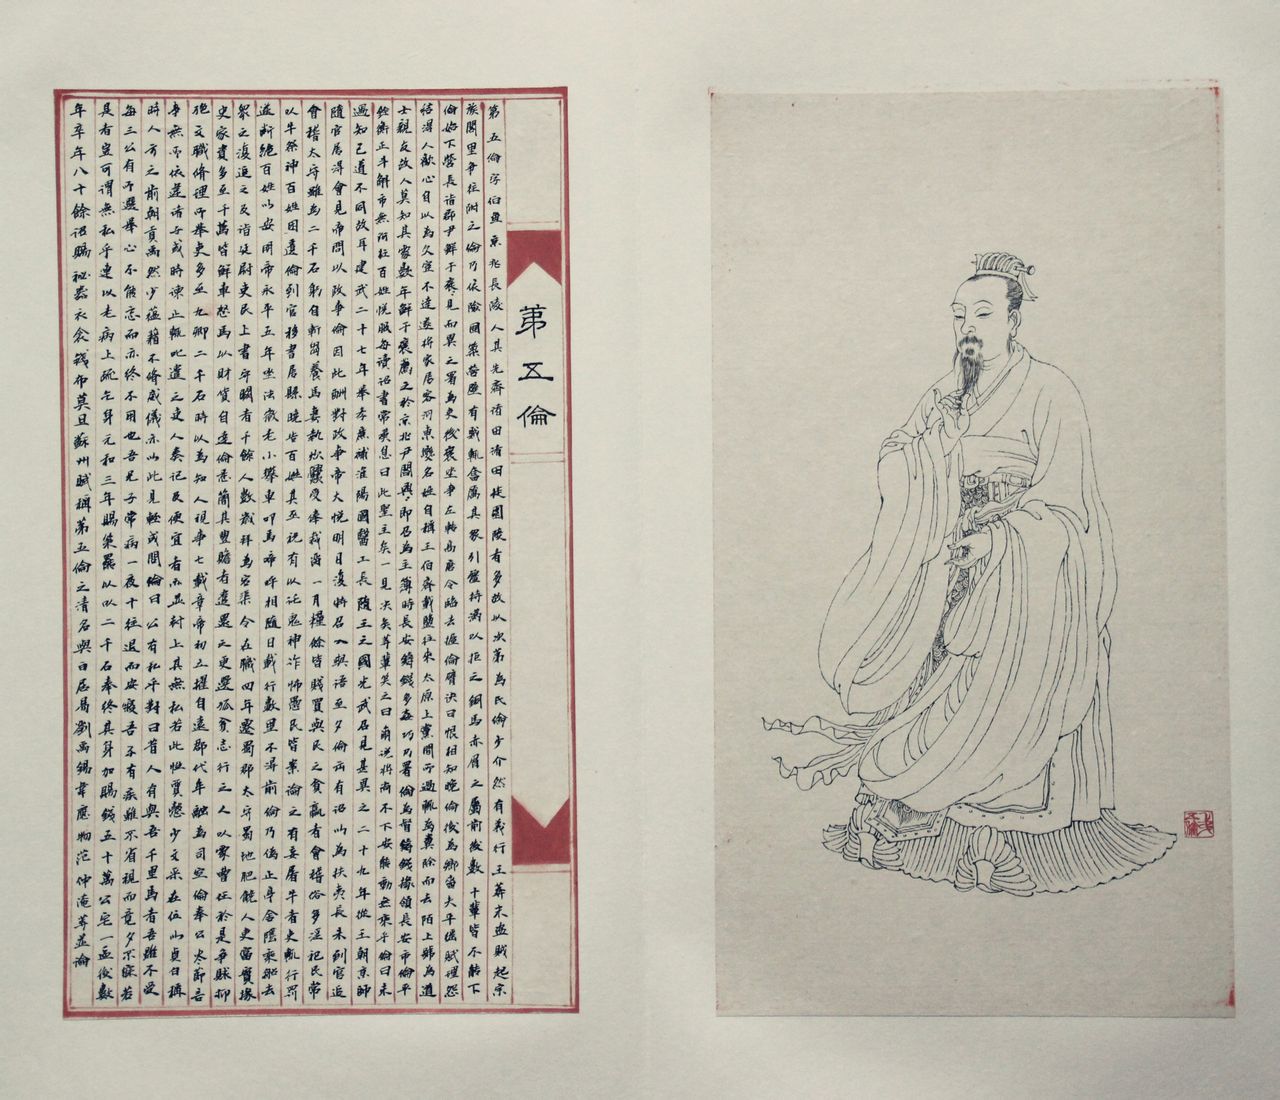 第五倫
第五倫字伯魚京兆長陵人其先齊諸田諸田徙園陵者多故以次第為氏倫少介然有義行王莽末盗賊起宗
族閭里争往附之倫乃依險固築營壁有賊輒奮厲其眾引彊持滿以拒之銅馬赤眉之屬前後數十輩皆不能下
倫始下營長詣郡尹鮮于褒見而異之署為吏後褒坐事左轉高唐令臨去握倫臂訣曰恨相知晚倫後為鄉嗇夫平徭賦理怨
結得人歡心自以為久宦不達遂將家屬客河東變名姓自稱王伯齊載鹽往來太原上黨間所過輒為糞除而去陌上號為道
士親友故人莫知其處數年鮮于褒薦之於京兆尹閻興即召為主簿時長安鑄錢多姦巧乃署倫為督鑄錢掾領長安市倫平
銓衡正斗斛市無阿枉百姓悅服每讀詔書常歎息曰此聖主矣一見決矣等輩笑之曰爾说將尚不下安能動萬乘乎倫曰未
遇知己道不同故耳建武二十七年舉孝廉補淮陽國醫工長隨王之國光武召見甚異之二十九年從王朝京師
隨官屬得會見帝問以政事倫因此酬對政事帝大悅明日復特召入與語至夕倫有詔以為扶夷長未到官追
會稽太守雖為二千石躬自斬芻養馬妻執炊爨受俸裁留一月糧餘皆賤買與民之貧羸者會稽俗多淫祀民常
以牛祭神百姓因遺倫到官移書屬縣曉告百姓其巫祝有以託鬼神詐怖愚民皆案論之有妄屠牛者吏輒行罰
遂斷絕百姓以安明帝永平五年坐法徵老小攀車叩馬啼呼相隨日裁行數里不得前倫乃偽止亭舍陰乘船去
眾之復追之及詣廷尉吏民上書守闕者千餘人數歲拜為宕渠令在職四年遷蜀郡太守蜀地肥饒人吏富實掾
史家資多至千萬皆鮮車怒馬以財貨自達倫悉簡其豐贍者遣還之更選孤貧志行之人以處曹任於是爭賕抑
絕文職修理所舉吏多至九卿二千石時以為知人視事七載章帝初立擢自遠郡代牟融為司空倫奉公盡節言
事無所依違諸子或時諫止輒叱遣之吏人奏記及便宜者亦並封上其無私若此性質愨少文采在位以貞白稱
時人方之前朝貢禹然少蘊藉不脩威儀亦以此見輕或問倫曰公有私乎對曰昔人有與吾千里馬者吾雖不受
每三公有所選舉心不能忘而亦終不用也吾兄子常病一夜十往退而安寢吾子有疾雖不省視而竟夕不寐若
是者豈可謂無私乎連以老病上疏乞身元和三年賜策罷以以二千石奉終其身加賜錢五十萬公宅一區後數
年卒年八十餘詔賜祕器衣衾錢布莫旦蘇州賦稱第五倫之清名與白居易劉禹錫韋應物范仲淹等並論